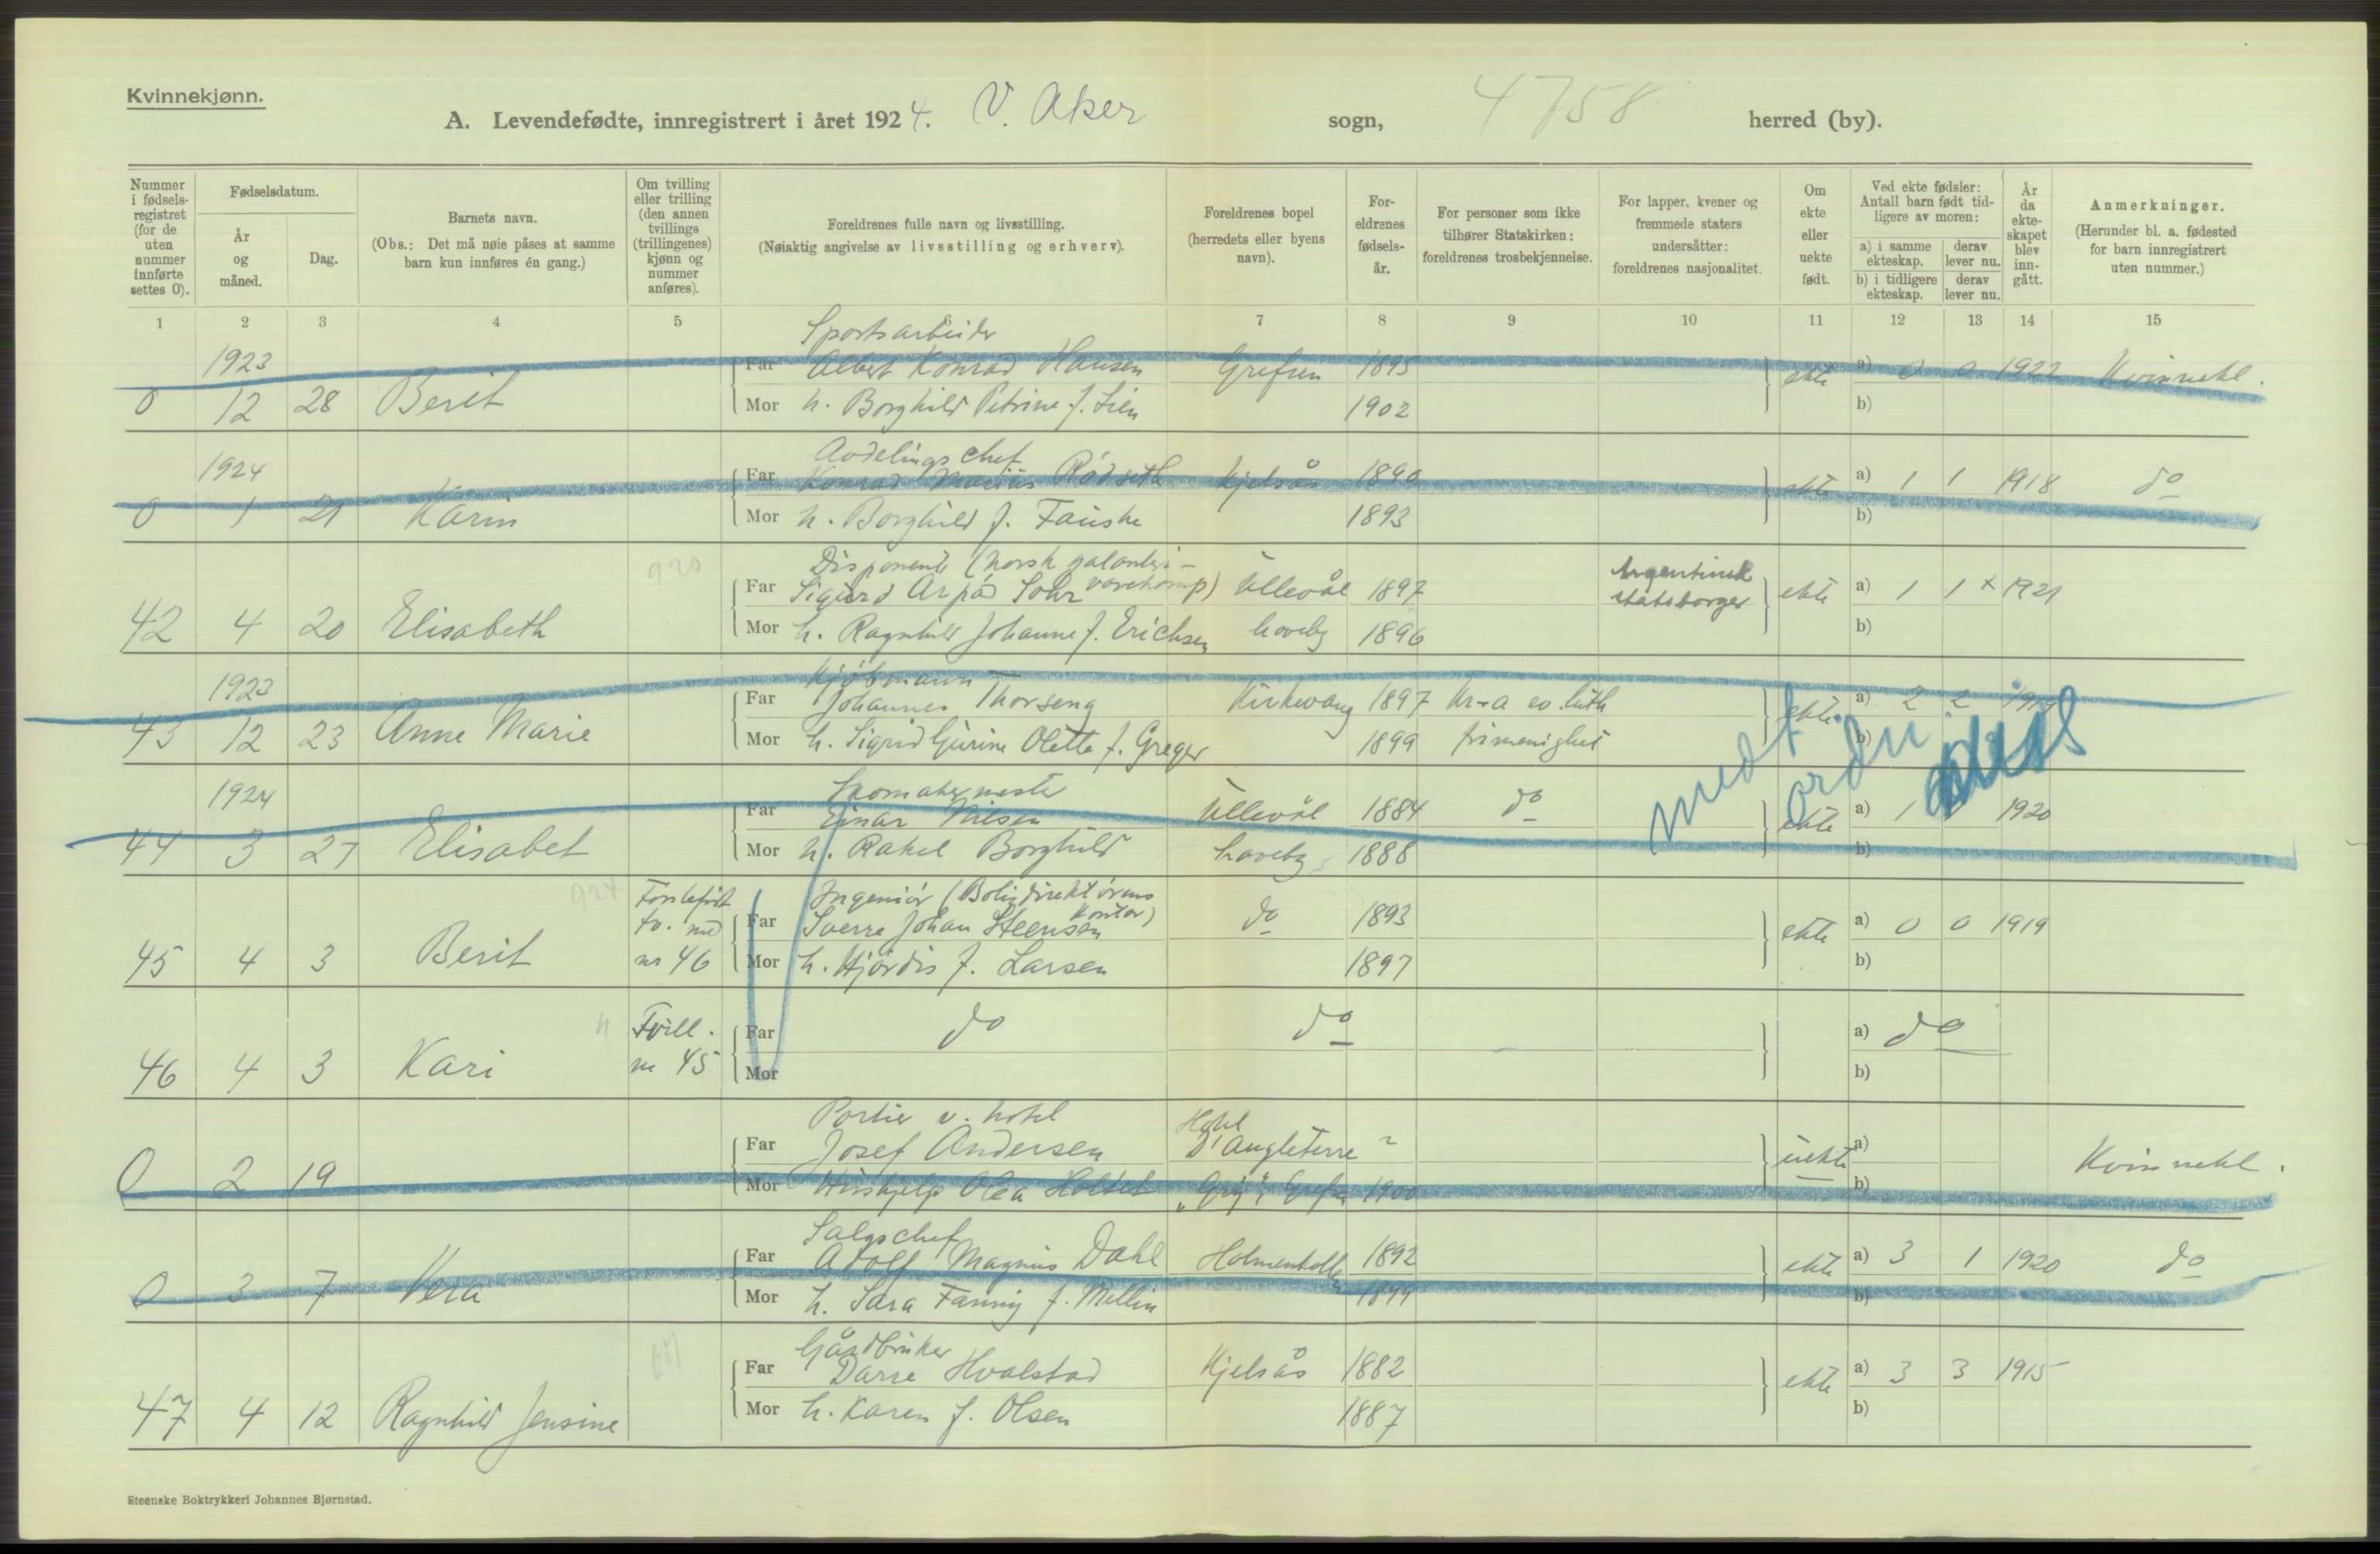 Kvinnekjønn.
A. Levendefødte, innregistrert i året 1924. V. Aker sogn, 4758 herred (by).
Nummer i fødsels-registret (for de uten nummer innførte settes 0).
Fødselsdatum.
År og måned.
Dag.
Barnets navn.
(Obs.: Det må nøie påses at samme barn kun innføres én gang.)
Om tvilling eller trilling (den annen tvillings (trillingenes) kjønn og nummer anføres).
Foreldrenes fulle navn og livsstilling.
(Nøiaktig angivelse av livsstilling og erhverv).
Foreldrenes bopel (herredets eller byens navn).
For-eldrenes fødsels-år.
For personer som ikke tilhører Statskirken: foreldrenes trosbekjennelse.
For lapper, kvener og fremmede staters undersåtter: foreldrenes nasjonalitet.
Om ekte eller uekte født.
Ved ekte fødsler: Antall barn født tid-ligere av moren:
a) i samme ekteskap.
derav lever nu.
b) i tidligere ekteskap.
derav lever nu.
År da ekte-skapet blev inn-gått.
Anmerkninger.
(Herunder bl. a. fødested for barn innregistrert uten nummer.)
1 2 3 4 5 6 7 8 9 10 11 12 13 14 15
Sportsarbeider
1923 Far Albert Konrad Hansen Grefsen 1895 ekte a) 0 0 1922 Kvinnekl.
0 12 28 Berit Mor h. Borghild Petrine f. Lien 1902 b)
Avdelingschef
1924 Far Konrad Marius Rødseth Kjelsås 1890 ekte a) 1 1 1918 do
0 1 21 Karin Mor h. Borghild f. Fauske 1893 b)
920 Disponent (norsk galanteri-
Far Sigurd Arpád Sohr varekomp) Ullevål 1897 Argentinsk statsborger ekte a) 1 1 x 1921
42 4 20 Elisabeth Mor h. Ragnhild Johanne f. Erichsen haveby 1896 b)
Kjøbmann
1923 Far Johannes Thorseng Kirkevang 1897 Kr-a ev. luth ekte a) 2 2 1919
43 12 23 Anne Marie Mor h. Sigrid Gurine Olette f. Greger 1899 frimenighet b)
medt ordn
Skomakermester
1924 Far Einar Nilsen Ullevål 1884 do ekte a) 1 1920
44 3 27 Elisabet Mor h. Rakel Borghild haveby 1888 b)
924 Førstefødt Ingeniør (Boligdirektørens
tv. med Far Sverre Johan Steensen kontor) do 1893 ekte a) 0 0 1919
45 4 3 Berit nr 46 Mor h. Hjørdis f. Larsen 1897 b)
Tvill. Far do do a) do
46 4 3 Kari nr 45 Mor b)
Portier v. hotel Hotel
Far Josef Andersen D'Angleterre ? uekte a) Kvinnekl.
0 2 19 Mor Hushjelp Olea Holtet 1900 b)
Salgschef
Far Adolf Magnus Dahl Holmenkollen 1892 ekte a) 3 1 1920 do
0 3 7 Vera Mor h. Sara Fanny f. Mellin 1899 b)
Gårdbruker
Far Darre Hvalstad Kjelsås 1882 ekte a) 3 3 1915
47 4 12 Ragnhild Jensine Mor h. Karen f. Olsen 1887 b)
Steenske Boktrykkeri Johannes Bjørnstad.